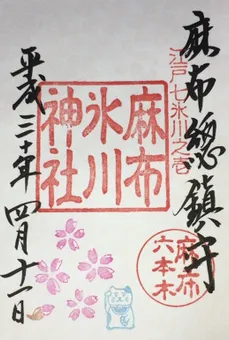 麻布總鎮守
江戸七氷川之壱
麻布
氷川
神社
平成三十年四月十二日
麻布
六本木